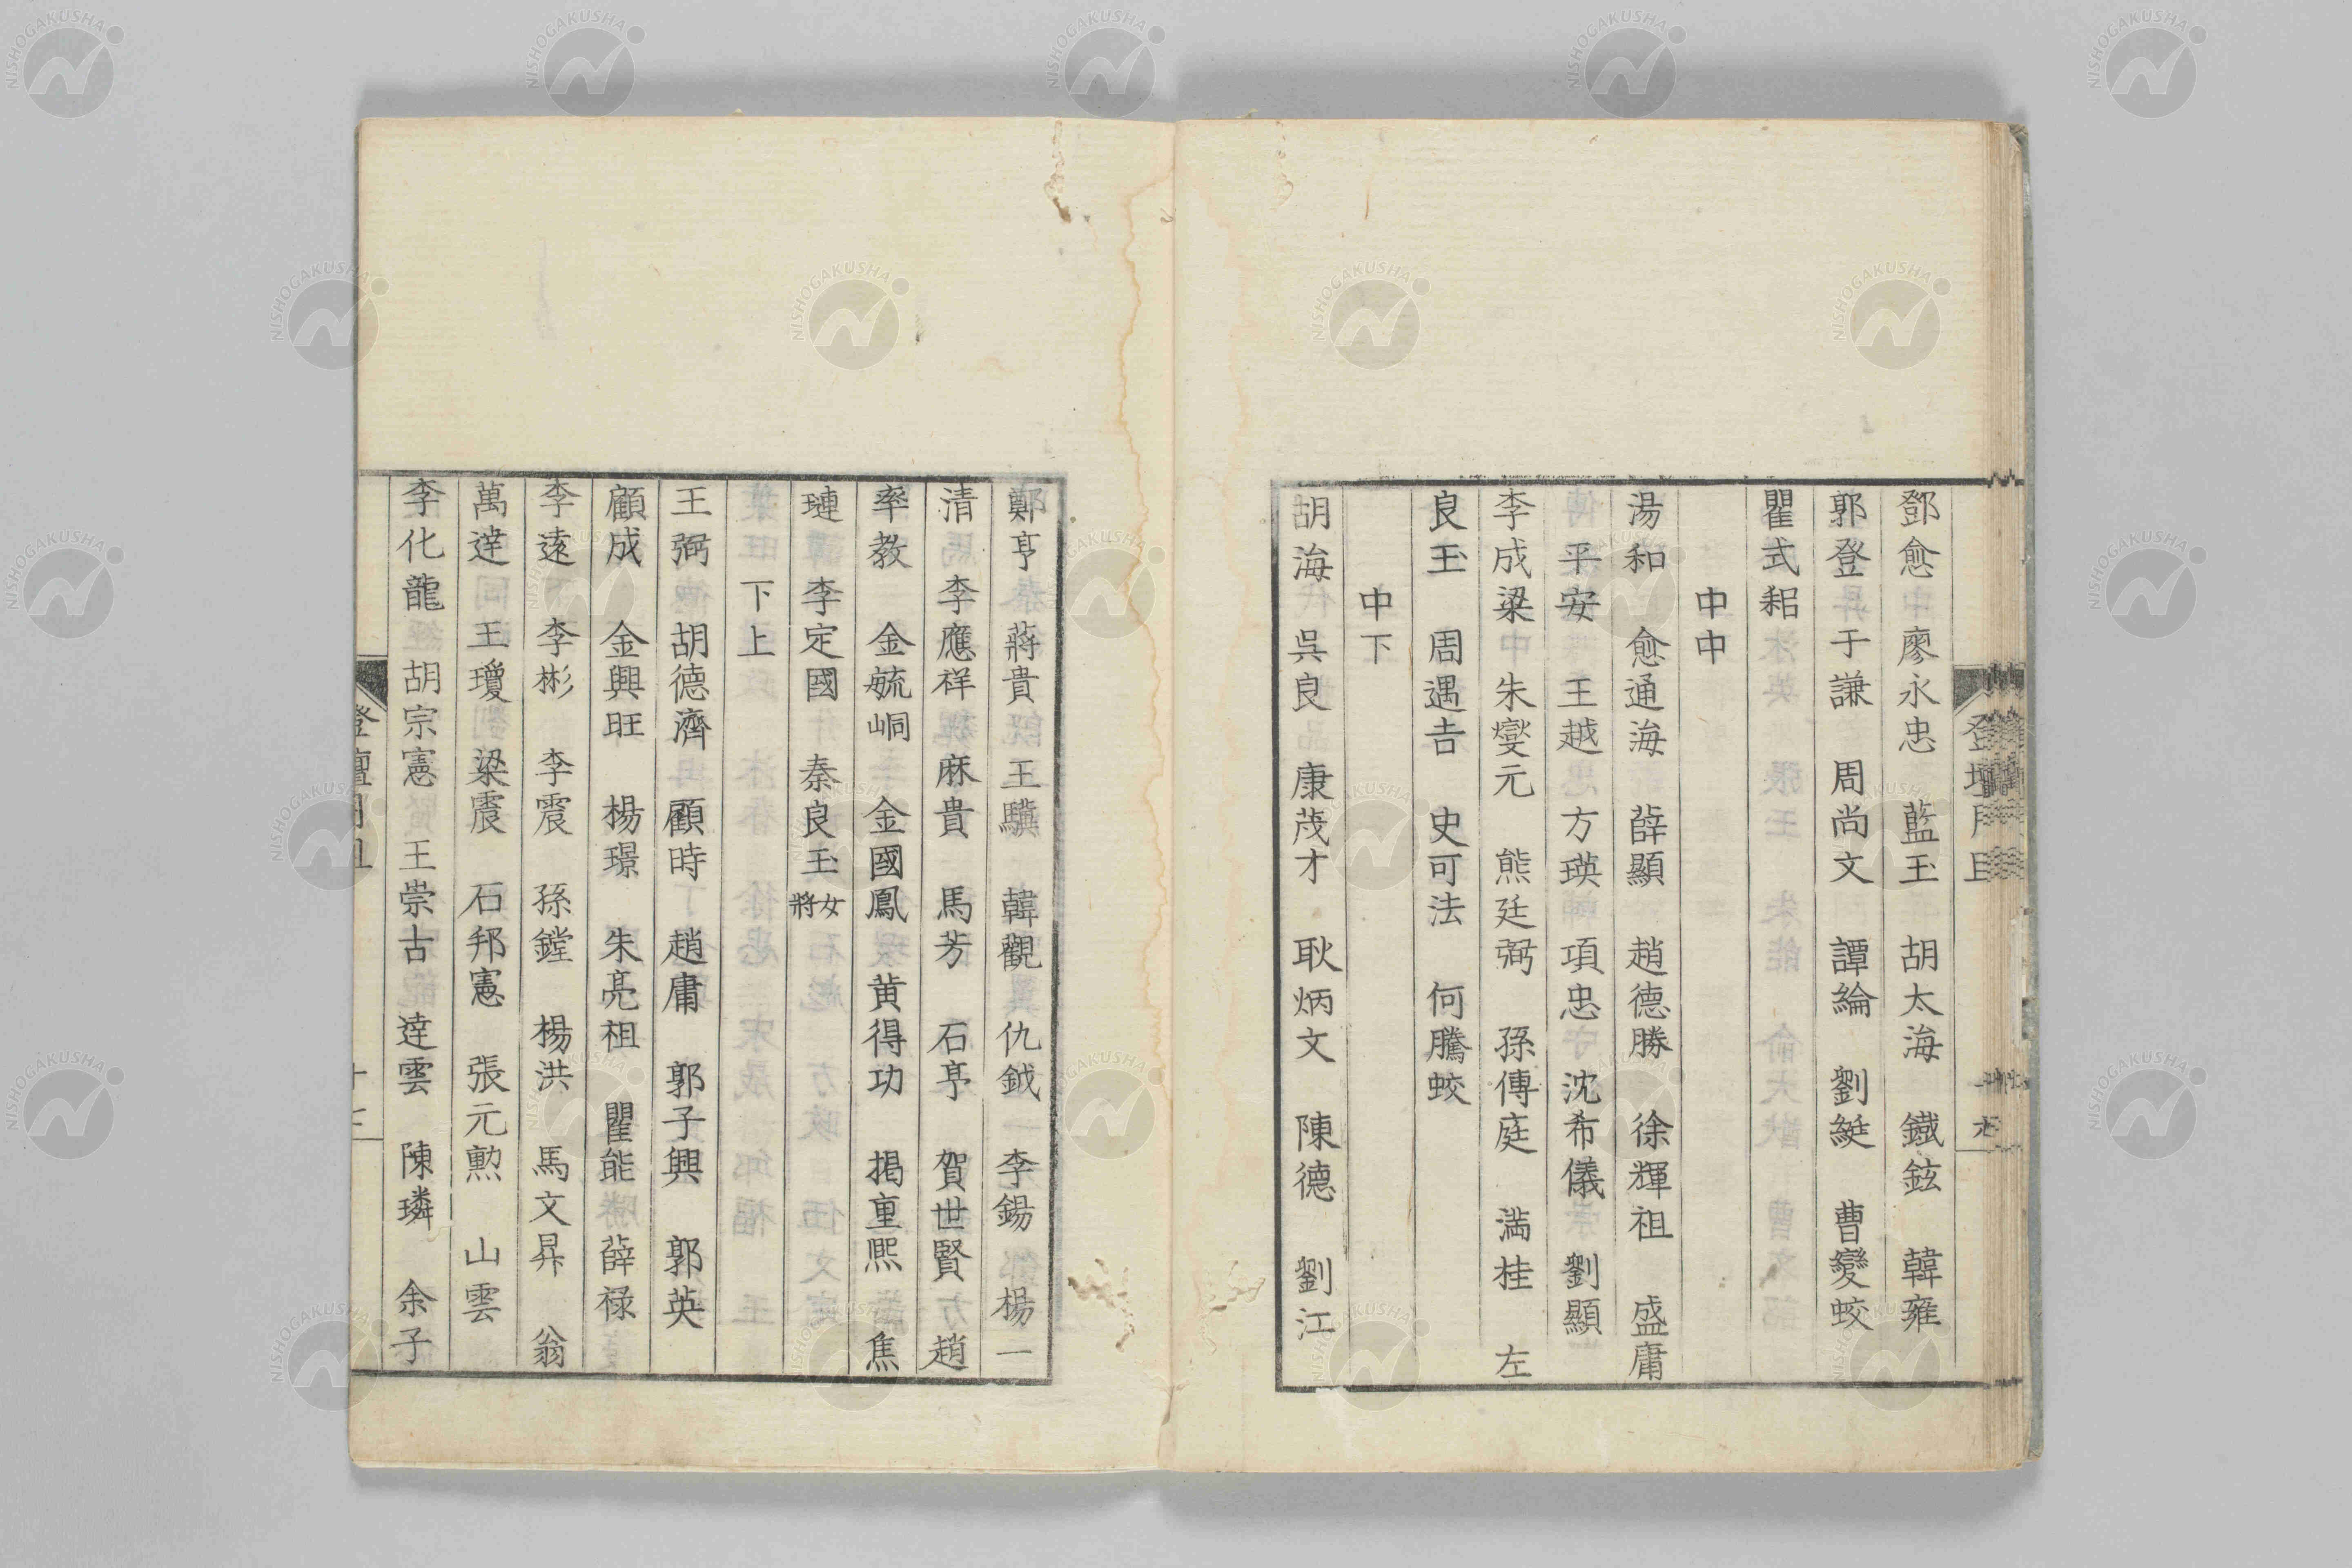 鄧愈 廖永忠 藍玉 胡太海 鐵鉉 韓雍
郭登 于謙 周尚文 譚綸 劉綎 曹變蛟
瞿式耜
中中
湯和 愈通海 薛顯 趙德勝 徐輝祖 盛庸
平安 王越 方瑛 項忠 沈希儀 劉顯
李成梁 朱燮元 熊廷弼 孫傳庭 満桂 左
良玉 周遇吉 史可法 何騰蛟
中下
胡海 吳良 康茂才 耿炳文 陳德 劉江
鄭亨 蔣貴 王驥 韓觀 仇鉞 李錫 楊一
清 李應祥 麻貴 馬芳 石亨 賀世賢 趙
率教 金毓峒 金國鳳 黄得功 掲重熙 焦
璉 李定國 秦良玉女將
下上
王弼 胡德濟 顧時 趙庸 郭子興 郭英
顧成 金興旺 楊璟 朱亮祖 瞿能 薛禄
李遠 李彬 李震 孫鏜 楊洪 馬文昇 翁
萬達 王瓊 梁震 石邦憲 張元勲 山雲
李化龍 胡宗憲 王崇古 達雲 陳璘 余子
NISHOGAKUSHA